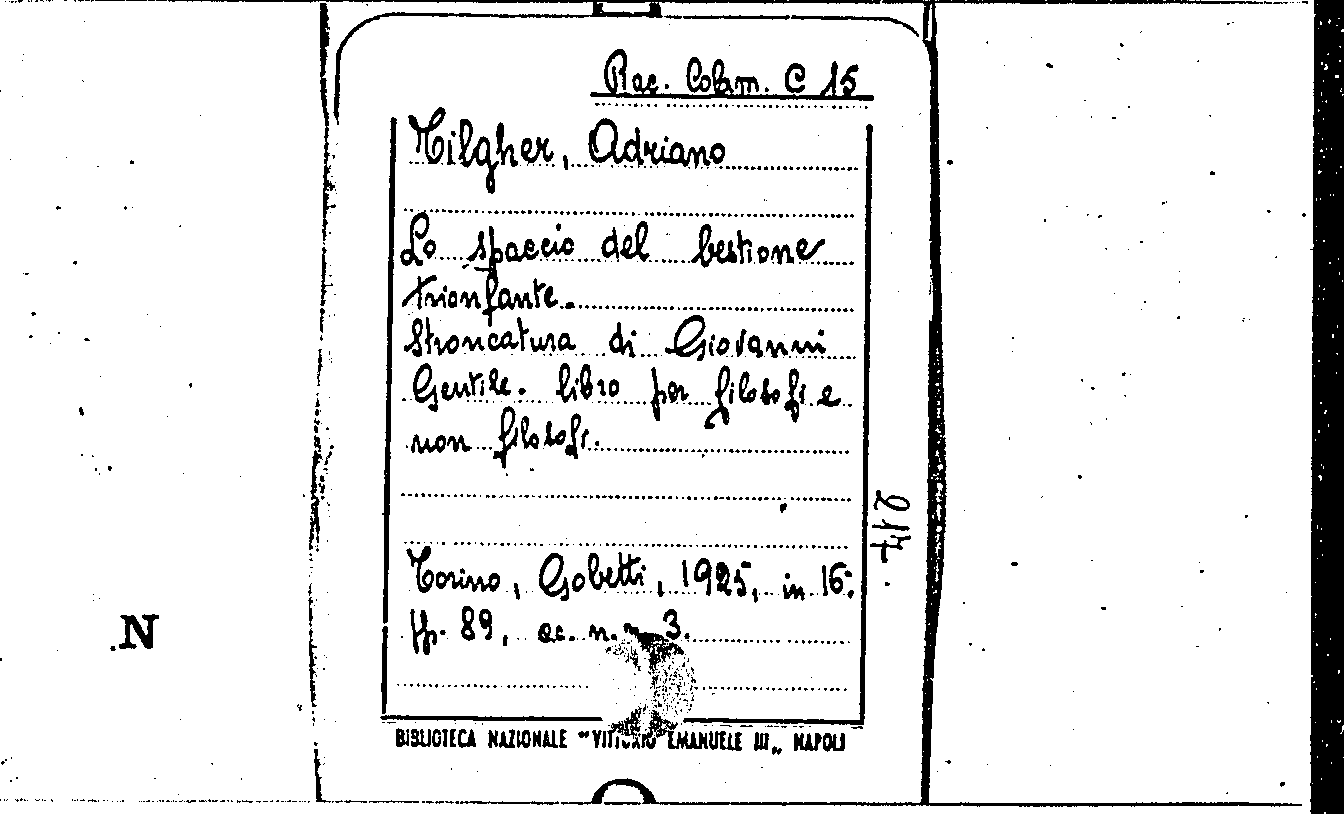 Rac. Colam. C 15
Tilgher, Adriano
Lo spaccio del bestione
trionfante.
Stroncatura di Giovanni
Gentile. libro per filosofi e
non filosofi.
Torino, Gobetti, 1925, in 16:
pp. 89, ec. n. n. 3.
BIBLIOTECA NAZIONALE "VITTORIO EMANUELE III„ NAPOLI
.N